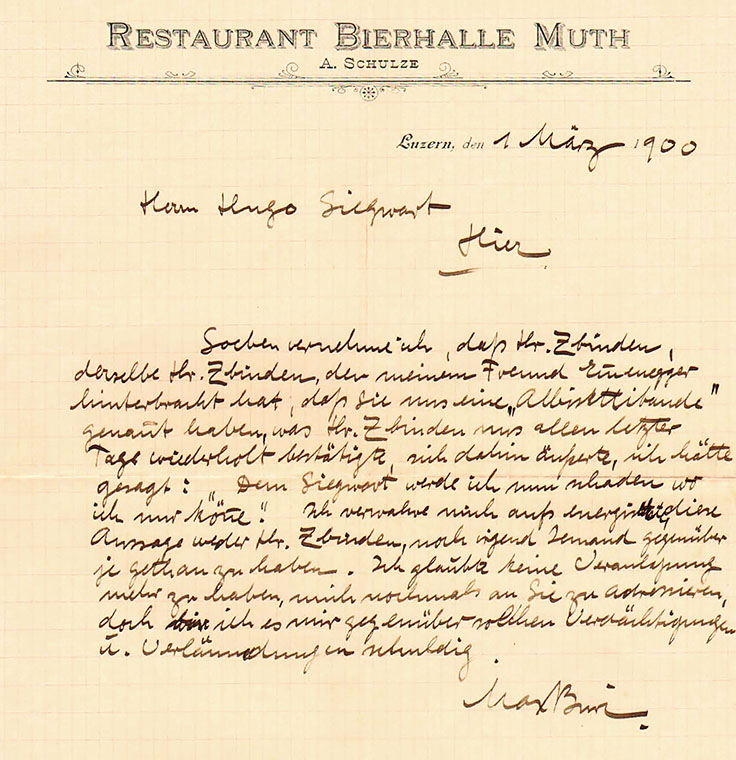 RESTAURANT BIERHALLE MUTH
A. SCHULZE
Luzern, den 1 März 1900
Herrn Hugo Siegwart
Hier.
Soeben vernehme ich, daß Hr. Zbinden,
derselbe Hr. Zbinden, der meinem Freund Emmenegger
hinterbracht hat, daß Sie uns eine „
genannt haben, was Hr. Zbinden uns allen letzter
Tage wiederholt bestätigte, sich dahin äußerte, ich hätte
gesagt: „Dem Siegwart werde ich nun schaden wo
ich nur köne." Ich verwahre mich aufs diese
Aussage weder Hr. Zbinden, noch irgend Jemand gegenüber
je gethan zu haben. Ich glaubte keine Veranlassung
mehr zu haben, mich nochmals an Sie zu adressieren,
doch bin ich es mir gegenüber solchen Verdächtigungen
u. Verläumdungen schuldig.
Max Buri.